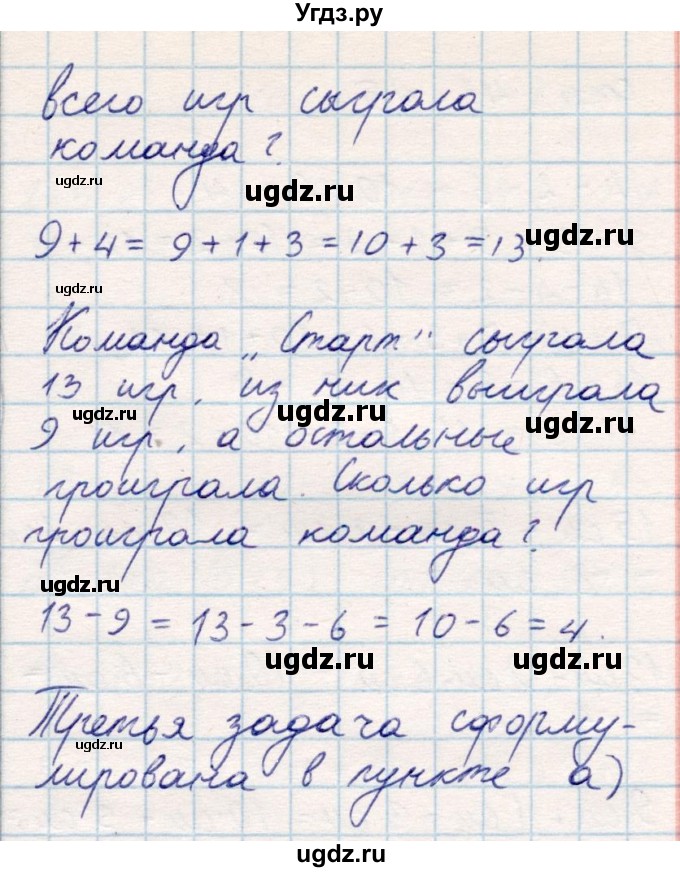 Угдз.ру
всего игр сыграла
команда?
ugdz.ru
ugdz.ru
9+4= 9+1+3=10+3=13.
ugdz.ru
ugdz.ru
Команда „Старт" сыграла
13 игр, из них выиграла
ugdz.ru
ugdz.ru
ugdz.ru
9 игр, а остальные
проиграла. Сколько игр
проиграла команда?
ugdz.ru
13-9=13-3-6=10-6=4.
ugdz.ru
ugdz.ru
Третья задача сформу-
ugdz.ru
лирована в пункте а)
ugdz.ru